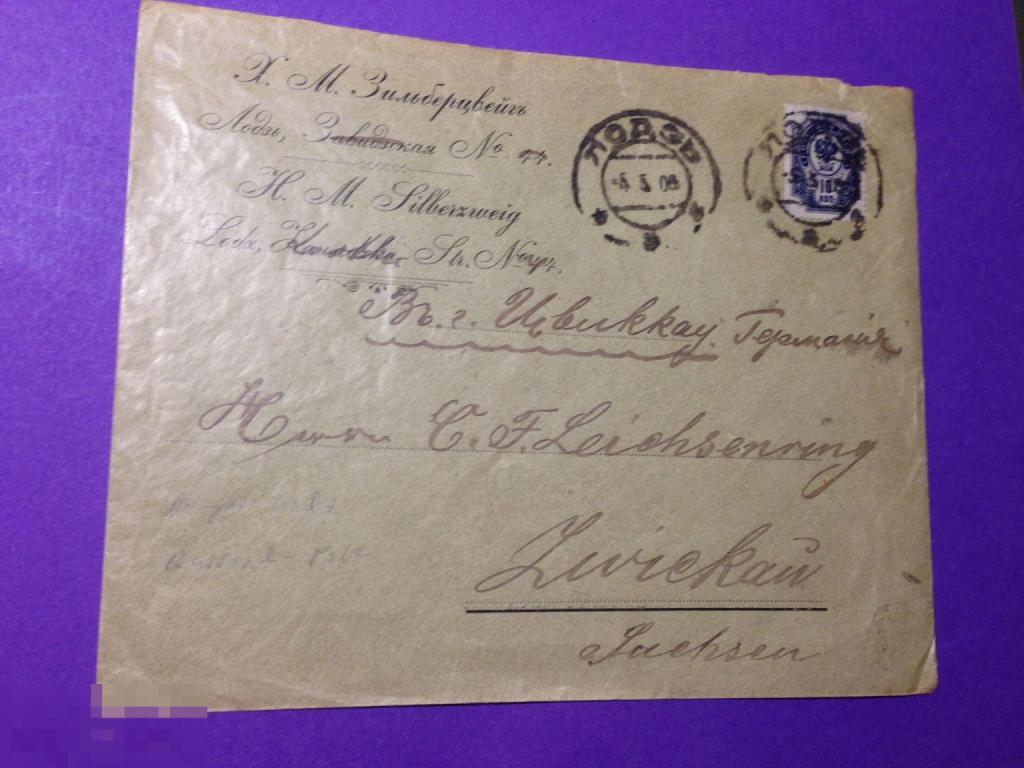 Х. М. Зильберцвейгъ
Лодзь, Завадзкая No.
H. M. Silberzweig
Lodz, Str. No
ЛОДЗЬ
5 08
ЛОДЗЬ
10
КОП
Въ г. Цвиккау Германія
Herrn C. F. Leichsenring
Zwickau
Sachsen